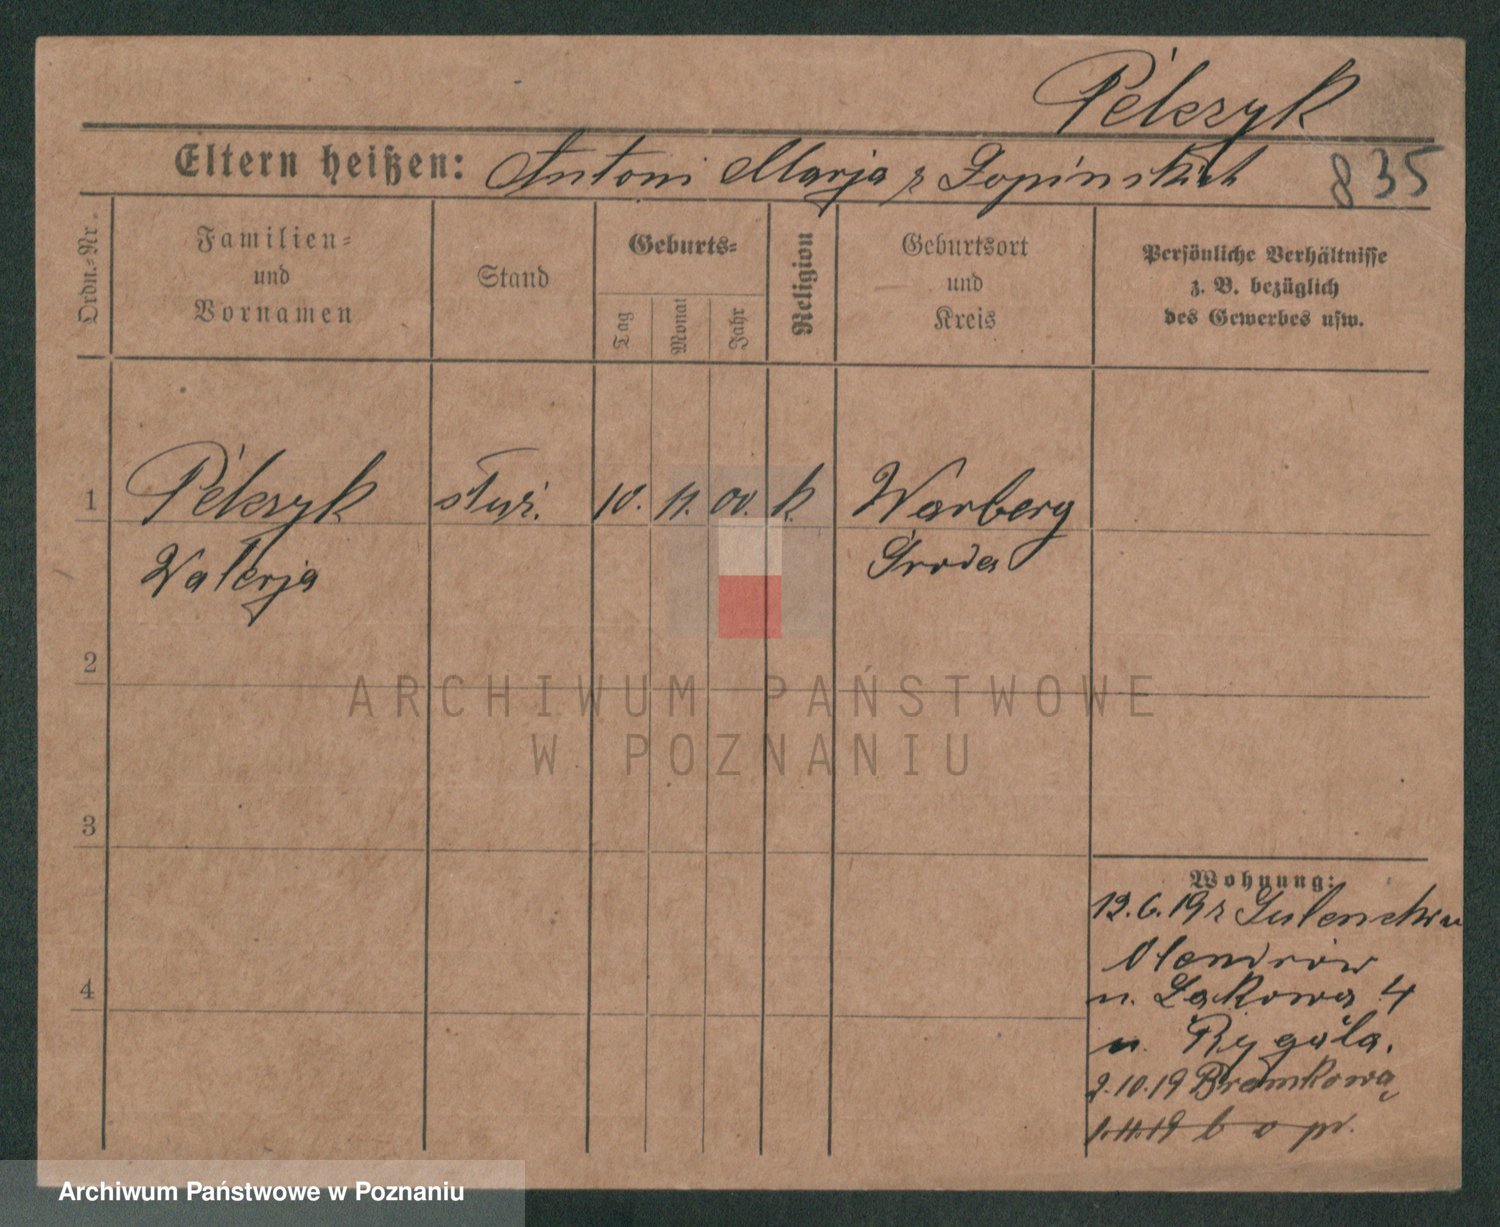 Pelczyk
Eltern heißen: Antoni Marja z Łopińskich 835
Ordn.-Nr.
Familien-
und
Vornamen
Stand
Geburts-
Tag
Monat
Jahr
Religion
Geburtsort
und
Kreis
Persönliche Verhältnisse
z. B. bezüglich
des Gewerbes usw.
1 Pelczyk służ. 10. 11. 00. k. Warberg
Walerja Środa
2
ARCHIWUM PAŃSTWOWE
W POZNANIU
3
Wohnung:
6.19 z
4
u. Łąkowa 4
u. Rygala.
2.10.19 Bramkowa
1.11.19 b o pr.
Archiwum Państwowe w Poznaniu